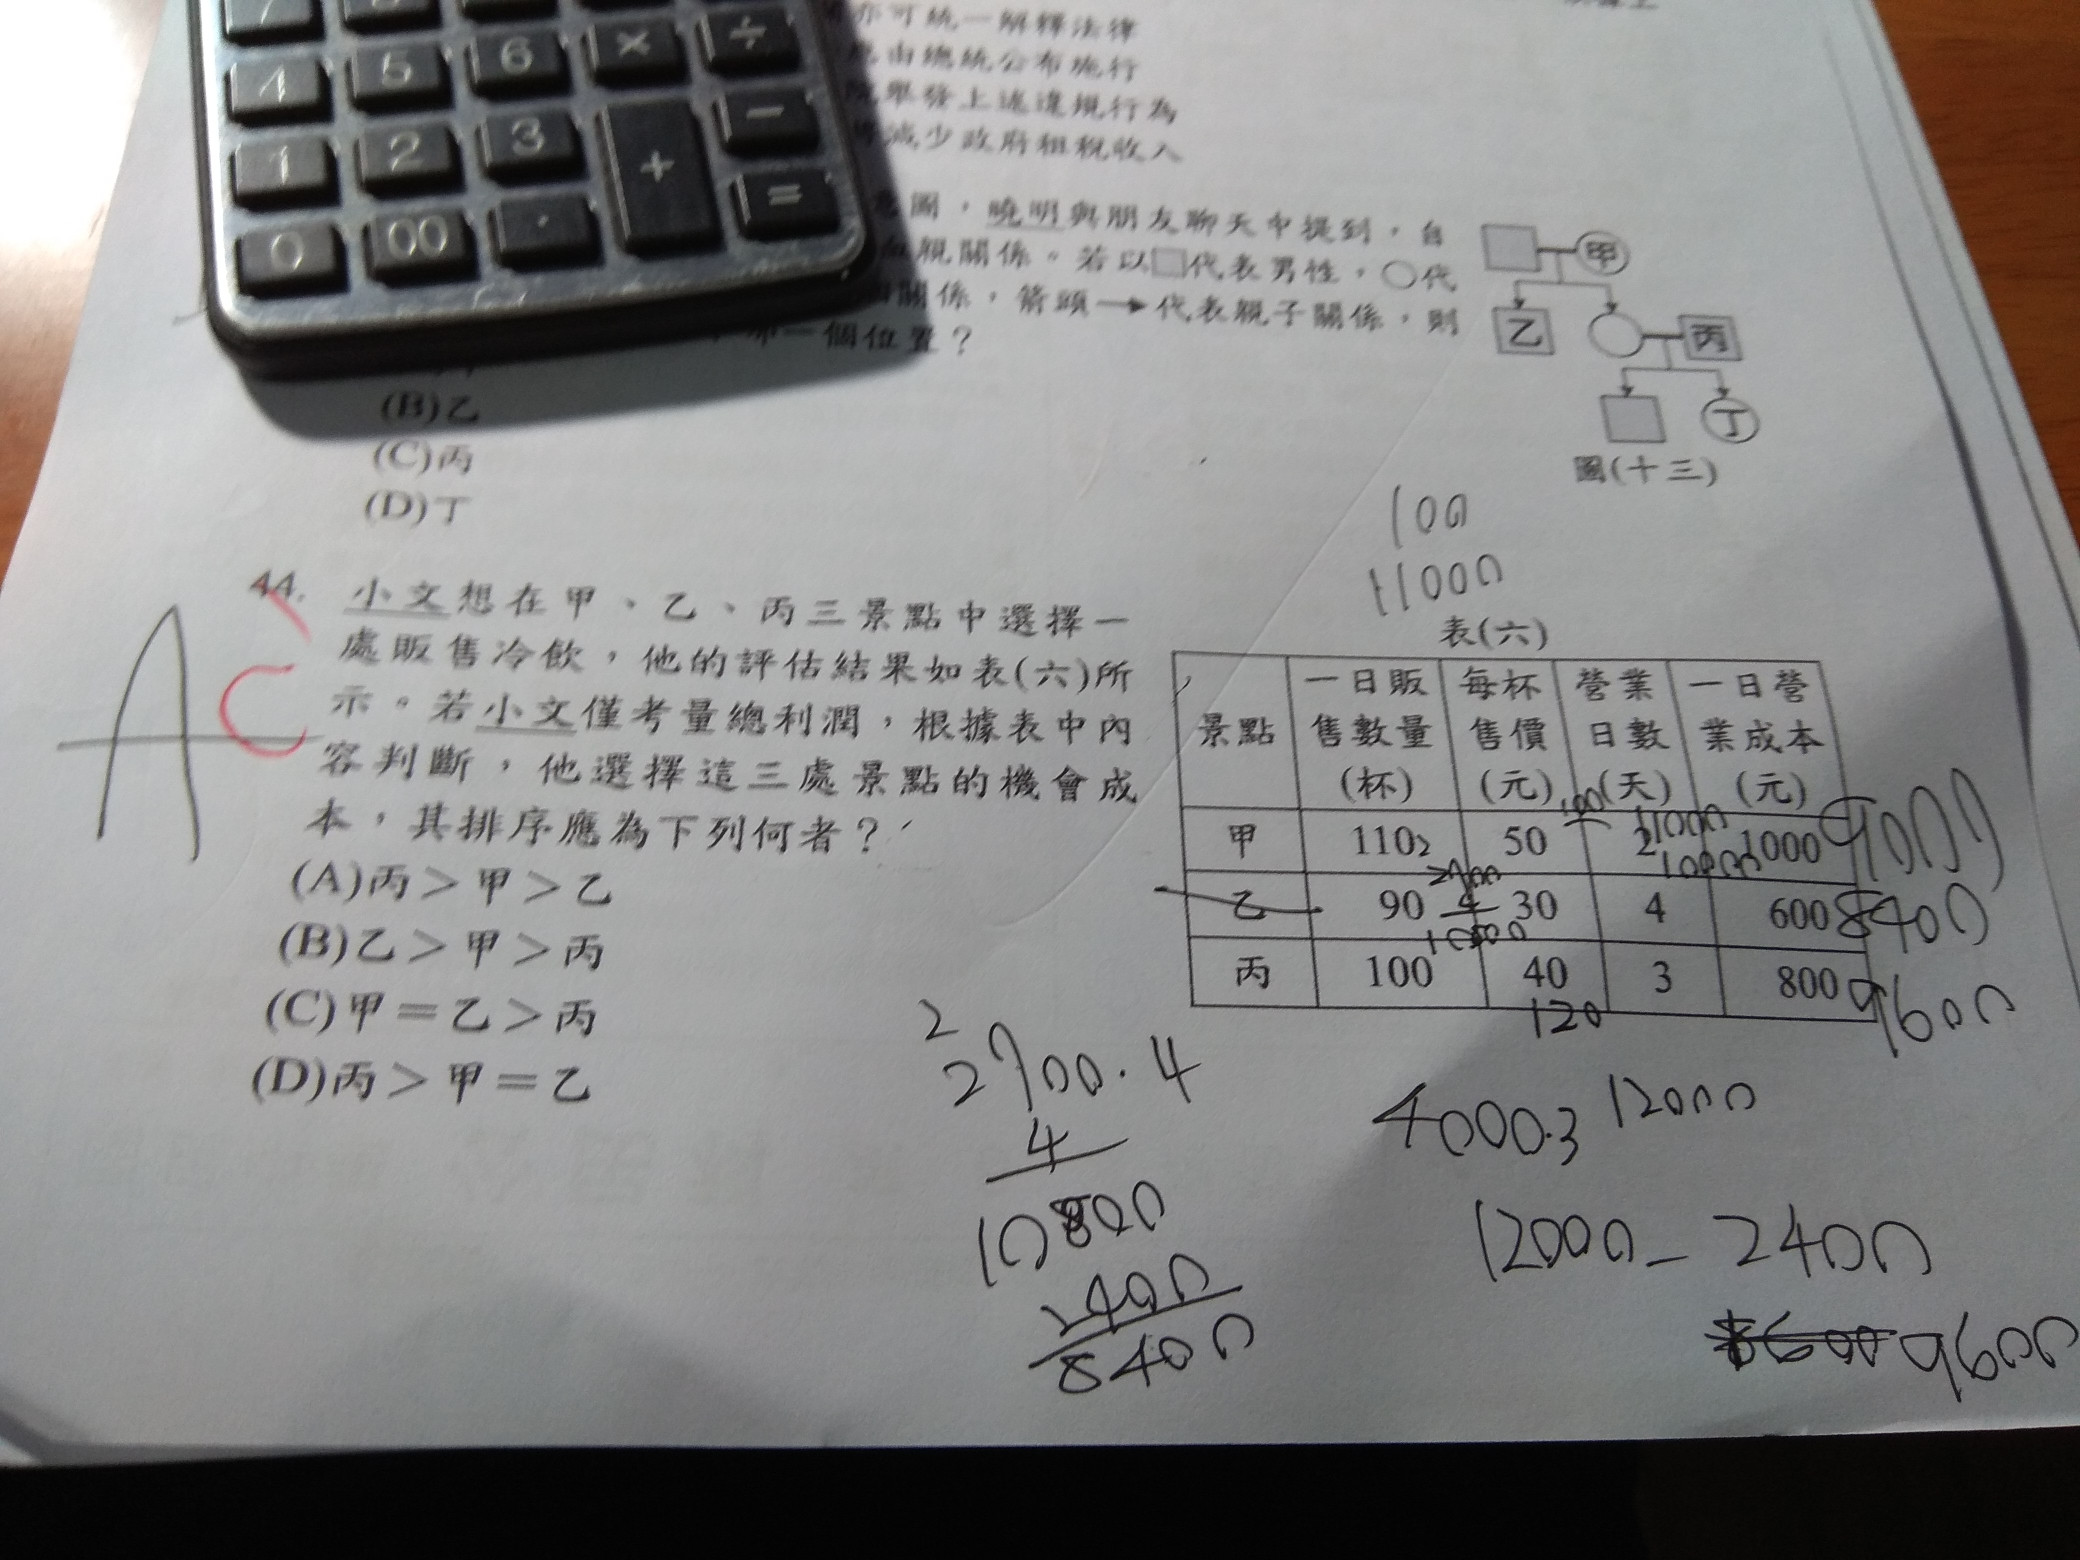 4 5 6 × ÷
1 2 3 + −
0 00 · =
亦可統一解釋法律
由總統公布施行
舉發上述違規行為
減少政府租稅收入
圖，曉明與朋友聊天中提到，自
親關係。若以□代表男性，○代
關係，箭頭→代表親子關係，則
一個位置？
(B)乙
(C)丙
(D)丁
甲
乙 丙
丁
圖(十三)
100
11000
A
C
44. 小文想在甲、乙、丙三景點中選擇一
處販售冷飲，他的評估結果如表(六)所
示。若小文僅考量總利潤，根據表中內
容判斷，他選擇這三處景點的機會成
本，其排序應為下列何者？
(A)丙＞甲＞乙
(B)乙＞甲＞丙
(C)甲＝乙＞丙
(D)丙＞甲＝乙
表(六)
景點 一日販售數量(杯) 每杯售價(元) 營業日數(天) 一日營業成本(元)
甲 110 50 2 1000 9000
乙 90 30 4 600 8400
丙 100 40 3 800 9600
100
11000
2700
4
120
2
2700·4
4
10800
2400
8400
4000·3 12000
12000-2400
9600